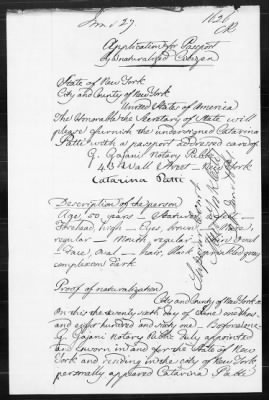 27
1621
Application for Passport
by a naturalized Citizen
State of New York
City and County of New York
United States of America
The Honorable the Secretary of State will
please furnish the undersigned Catarina
Patti with a passport addressed care of
G. Gajani Notary Public
43 Wall Street – New York
Catarina Patti
Description of the person
Age, 50 years –
Forehead, high – Eyes, brown – Nose,
regular – Mouth, regular –
Face, oval – Hair, black
complexion dark
Proof of naturalization
City and County of New York
On this the twenty sixth day of June one thous-
and eight hundred and sixty one – Before me
G. Gajani notary Public duly appointed
and sworn in and for the State of New
York and residing in the city of New York
personally appeared Catarina Patti